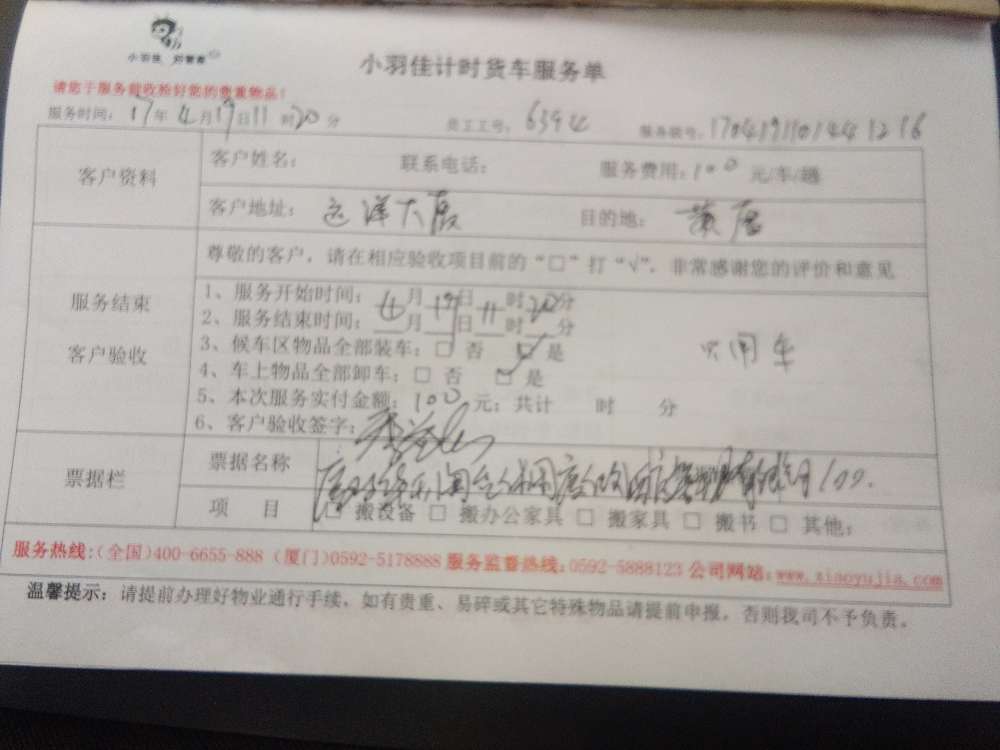 小羽佳 刘管家
小羽佳计时货车服务单
请您于服务前收检好您的贵重物品！
服务时间：17年4月19日11时20分 员工工号：6394 服务族号：1704191101441216
客户资料 客户姓名： 联系电话： 服务费用：100元/车/趟
客户地址：远洋大厦 目的地：
服务结束 客户验收
尊敬的客户，请在相应验收项目前的“□”打“√”，非常感谢您的评价和意见
1、服务开始时间：4月19日11时20分
2、服务结束时间：__月__日__时__分
3、候车区物品全部装车：□ 否 □ 是
只用车
4、车上物品全部卸车：□ 否 □ 是
5、本次服务实付金额：100元；共计 时 分
6、客户验收签字：
票据栏 票据名称 100.
项 目 □ 搬设备 □ 搬办公家具 □ 搬家具 □ 搬书 □ 其他：
服务热线：（全国）400-6655-888（厦门）0592-5178888 服务监督热线：0592-5888123 公司网站：www.xiaoyujia.com
温馨提示：请提前办理好物业通行手续，如有贵重、易碎或其它特殊物品请提前申报，否则我司不予负责。